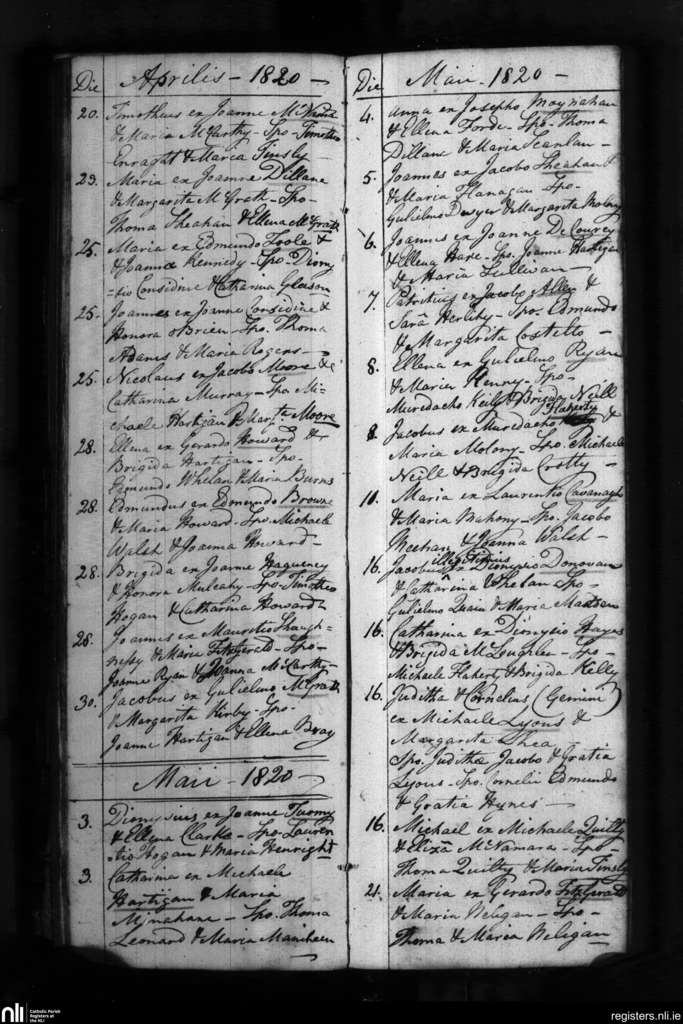 Die Aprilis - 1820 -
20. Timotheus ex Joanne McNama
& Maria McCarthy - Spo - Timotheo
Enraght & Maria Tinsly -
23. Maria ex Joanne Dillane
& Margarita McGrath - Spo -
Thoma Sheahan & Ellena McGrath
25. Maria ex Edmundo Toole &
& Joanna Kennedy - Spo - Diony
=sio Considine & Catharina Gleason
25. Joannes ex Joanne Considine &
Honora OBrien - Spo. Thoma
Adams & Maria Rogers -
25. Nicolaus ex Jacobo Moore &
Catharina Murray - Spo Mi-
chaele Hartigan & Margta Moore
28. Ellena ex Gerardo Howard &
Brigida Hartigan - Spo -
Edmundo Whelan & Maria Burns
28. Edmundus ex Edmundo Browne
& Maria Howard - Spo Michaele
Walsh & Joanna Howard -
28. Brigida ex Joanne Hagueney
& Honora Mulcahy - Spo - Timotheo
Hogan & Catharina Howard
28. Joannes ex Mauritio Shaugh-
nessy & Maria Fitzgerald - Spo -
Joanne Ryan & Joanna McCarthy -
30. Jacobus ex Gulielmo McGrath
& Margarita Kirby - Spo -
Joanne Hartigan & Ellena Bray
Maii - 1820 -
3. Dionysius ex Joanne Tuomy
& Ellena Clarke - Spo - Lauren
tio Hogan & Maria Henright
3. Catharina ex Michaele
Hartigan & Maria
Mjnahane - Spo. Thoma
Leonard & Maria Mainheen
Die Maii - 1820 -
4. Anna ex Josepho Moynahan
& Ellena Forde - Spo - Thoma
Dillane & Maria Scanlan -
5. Joannes ex Jacobo Sheahan
& Maria Flanagan - Spo -
Gulielmo Dwyer & Margarita Molony
6. Joannes ex Joanne De Courcy
& Ellena Hare - Spo. Joanne Hartigan
& Maria Sullivan -
7. Patritius ex Jacobo Allen &
Sara Herlihy - Spo - Edmundo
& Margarita Costello -
8. Ellena ex Gulielmo Ryan
& Maria Henry - Spo -
Muredacho Neill & Brigida Neill
8. Jacobus ex Muredacho Flaherty &
Maria Molony - Spo. Michaele
Neill & Brigida Crotty -
10. Maria ex Laurentio Cavanagh
& Maria Mahony - Spo. Jacobo
Meehan & Joanna Walsh -
16. Jacobus illegitimus ex Dionysio Donovan
& Catharina Whelan Spo -
Gulielmo Quain & Maria Madden
16. Catharina ex Dionysio Hayes
& Brigida McLoughlin - Spo -
Michaele Flaherty & Brigida Kelly
16. Juditha & Cornelius (Gemini)
ex Michaele Lyons &
Margarita Shea
Spo. Judithæ Jacobo & Gratia
Lyons - Spo. Cornelii Edmundo
& Gratia Hynes -
16. Michael ex Michaele Quilty
& Eliza McNamara - Spo -
Thoma Quilty & Maria Tinsly
21. Maria ex Gerardo Fitzgerald
& Maria Neligan - Spo -
Thoma & Maria Neligan
nli Catholic Parish
Registers at
the NLI
registers.nli.ie